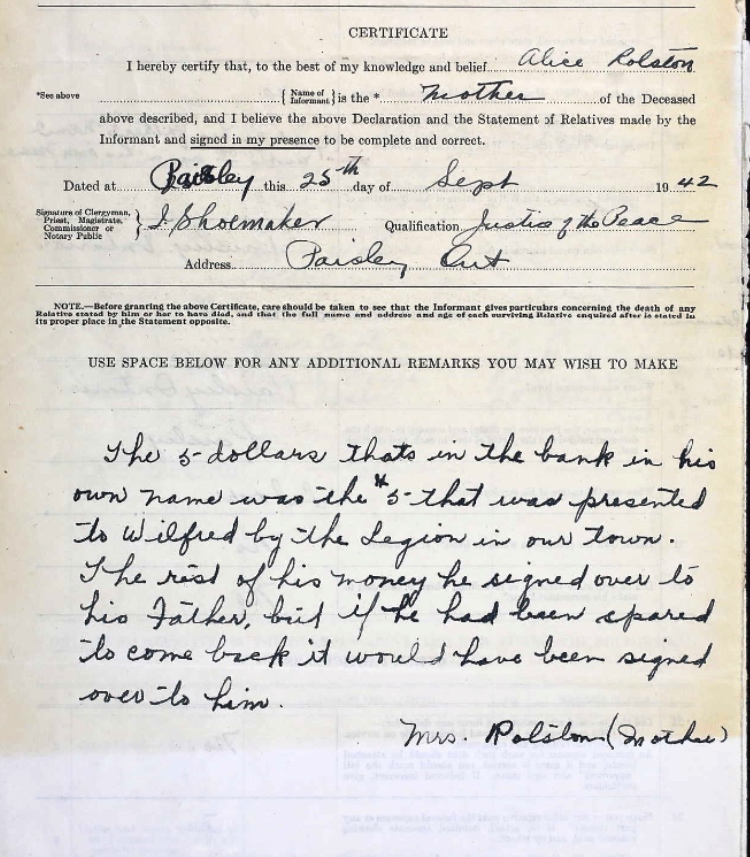 CERTIFICATE
I hereby certify that, to the best of my knowledge and belief Alice Rolston
*See above { Name of Informant } is the * Mother of the Deceased
above described, and I believe the above Declaration and the Statement of Relatives made by the
Informant and signed in my presence to be complete and correct.
Dated at Paisley this 25th day of Sept 1942
Signature of Clergyman, Priest, Magistrate, Commissioner or Notary Public } I. Shoemaker Qualification Justice of the Peace
Address Paisley Ont
NOTE.—Before granting the above Certificate, care should be taken to see that the Informant gives particulars concerning the death of any
Relative stated by him or her to have died, and that the full name and address and age of each surviving Relative enquired after is stated in
its proper place in the Statement opposite.
USE SPACE BELOW FOR ANY ADDITIONAL REMARKS YOU MAY WISH TO MAKE
The 5 dollars thats in the bank in his
own name was the $5 that was presented
to Wilfred by the Legion in our town.
The rest of his money he signed over to
his Father, but if he had been spared
to come back it would have been signed
over to him.
Mrs. Rolston (Mother)